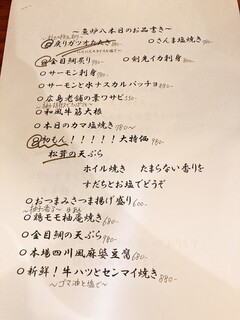 〜魚炉八本日のお品書き〜
戻りガツオたたき
○さんま塩焼き
金目鯛炙り
○剣先イカ刺身
○サーモン刺身
○サーモンと水ナスカルパッチョ 880-
○広島老舗の葉ワサビ 550-
○和風牛筋大根
○本日のカマ塩焼き 780〜
初もん!!!!!大特価 980-
松茸の天ぷら
ホイル焼き たまらない香りを
すだちとお塩でどうぞ
○おつまみさつま揚げ盛り 600-
○鶏モモ柚庵焼き 680-
○金目鯛の天ぷら 980-
○本場四川風麻婆豆腐 680-
○新鮮!牛ハツとセンマイ焼き 880-
〜ゴマ油と塩で〜